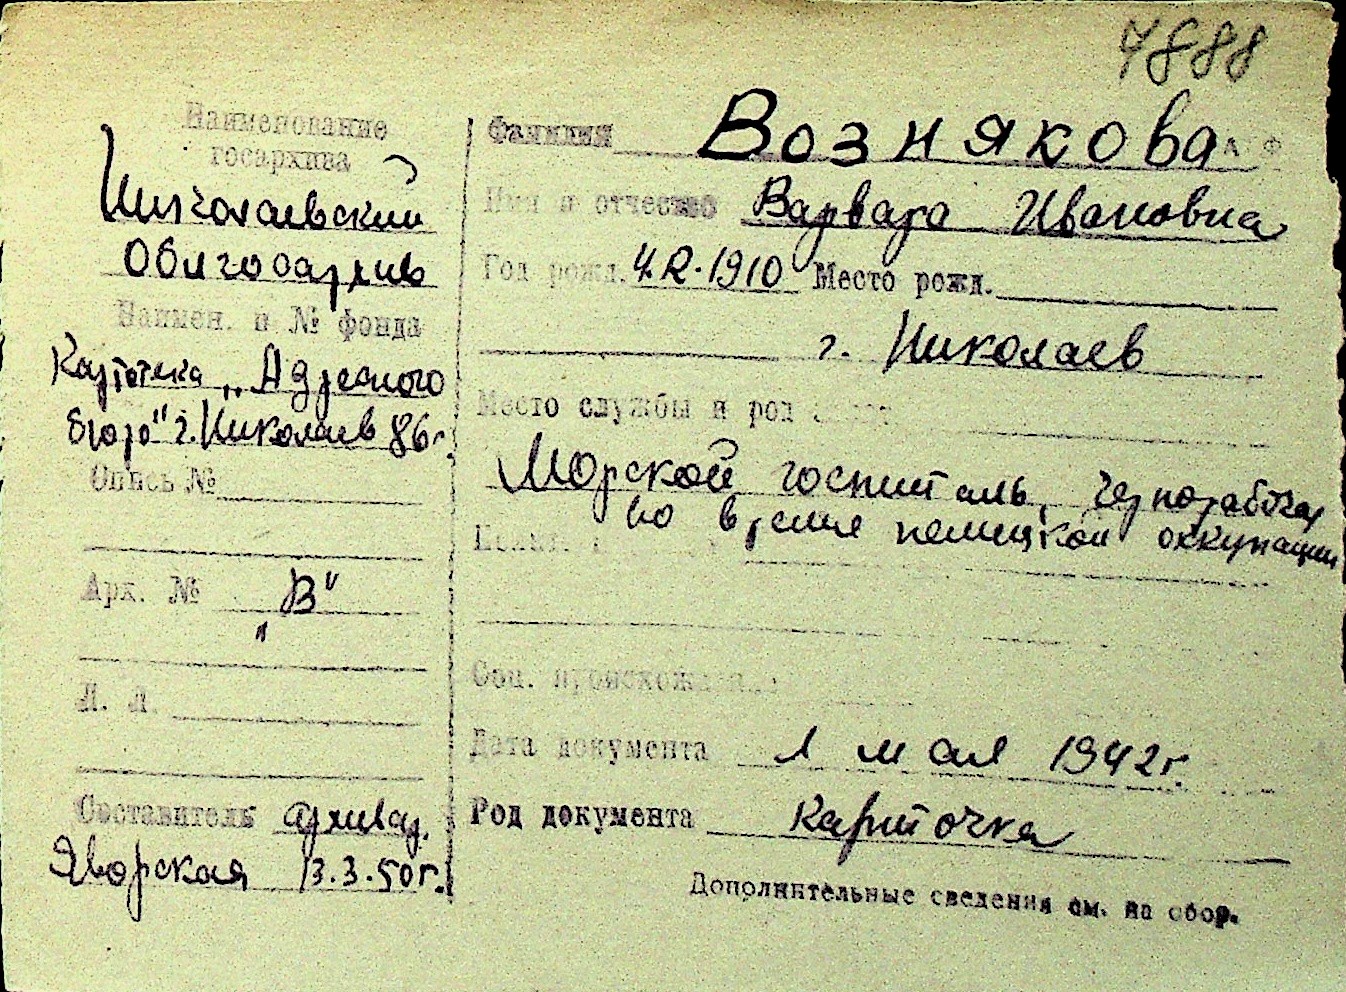 7888
Наименование
госархива
Николаевский
Облгосархив
Наимен. и № фонда
Картотека „Адресного
бюро" г. Николаев 86г.
Опись №
Арх. № „В"
Л. л.
Составитель архивар.
Яворская 13.3.50г.
Фамилия Вознякова
Имя и отчество Варвара Ивановна
Год рожд. 1910 Место рожд.
г. Николаев
Место службы и род
Морской госпиталь, чернорабочая
во время немецкой оккупации
Соц. происхожд
Дата документа 1 мая 1942г.
Род документа карточка
Дополнительные сведения см. на обор.